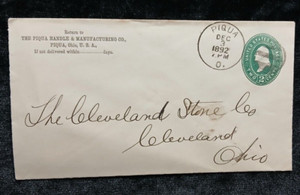 Return to
THE PIQUA HANDLE & MANUFACTURING CO.
PIQUA, Ohio, U. S. A.,
If not delivered within ........ days.
PIQUA
DEC
1892
PM
O.
UNITED STATES
2
The Cleveland Stone Co
Cleveland
Ohio